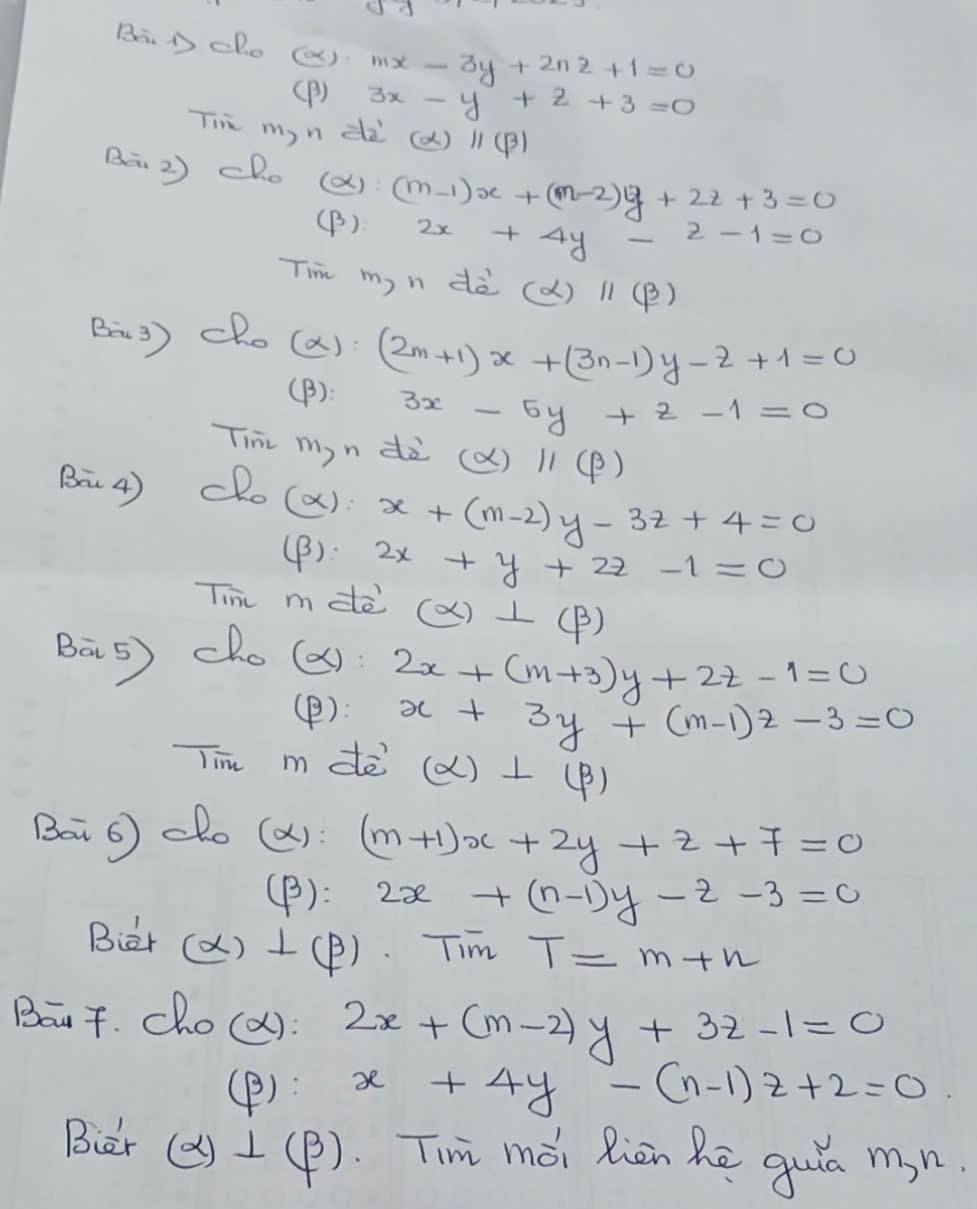 Bài 1) Cho (α): mx - 3y + 2nz + 1 = 0
(β) 3x - y + z + 3 = 0
Tìm m, n để (α) // (β)
Bài 2) Cho (α): (m-1)x + (m-2)y + 2z + 3 = 0
(β): 2x + 4y - z - 1 = 0
Tìm m, n để (α) // (β)
Bài 3) Cho (α): (2m+1)x + (3n-1)y - z + 1 = 0
(β): 3x - 5y + z - 1 = 0
Tìm m, n để (α) // (β)
Bài 4) Cho (α): x + (m-2)y - 3z + 4 = 0
(β): 2x + y + 2z - 1 = 0
Tìm m để (α) ⊥ (β)
Bài 5) Cho (α): 2x + (m+3)y + 2z - 1 = 0
(β): x + 3y + (m-1)z - 3 = 0
Tìm m để (α) ⊥ (β)
Bài 6) Cho (α): (m+1)x + 2y + z + 7 = 0
(β): 2x + (n-1)y - z - 3 = 0
Biết (α) ⊥ (β). Tìm T = m + n
Bài 7. Cho (α): 2x + (m-2)y + 3z - 1 = 0
(β): x + 4y - (n-1)z + 2 = 0.
Biết (α) ⊥ (β). Tìm mối liên hệ giữa m, n.